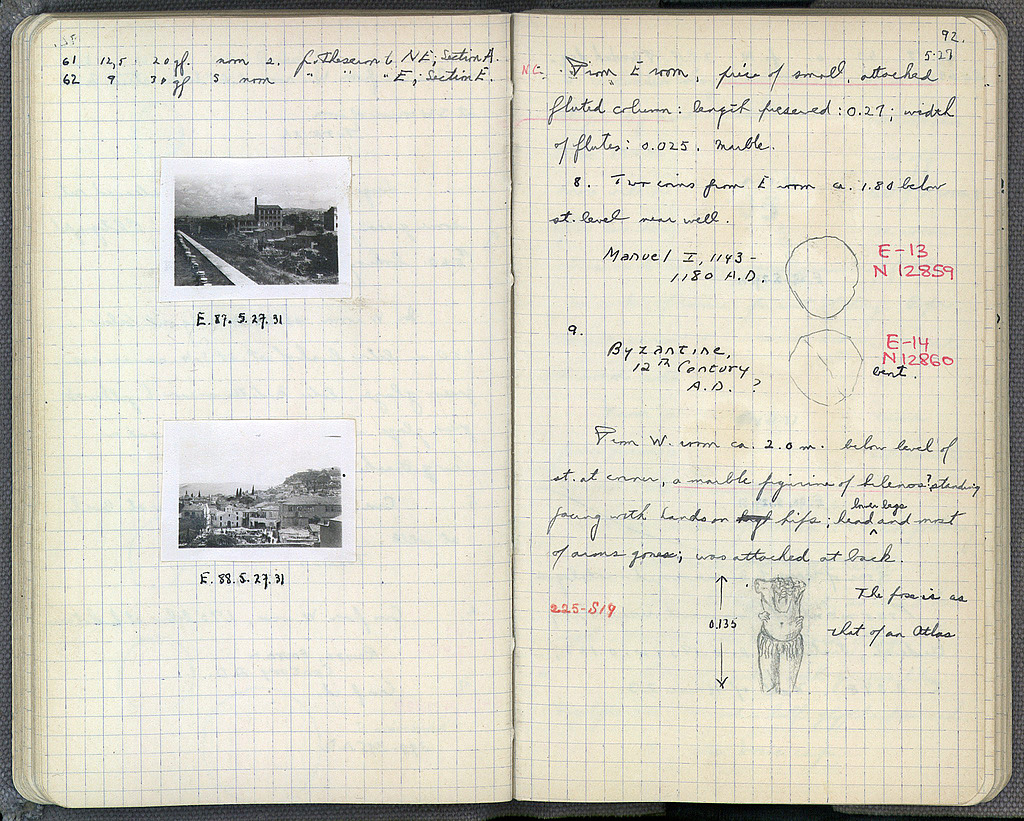 61 12,5 20 gf. nom 2. fr. Theseion 6 NE; Section A.
62 9 30 gf 5 nom " " " E; Section E.
E. 87. 5. 27. 31
E. 88. 5. 27. 31
92.
5-27
N.C. From E room, piece of small, attached
fluted column: length preserved: 0.27; width
of flutes: 0.025. Marble.
8. Two coins from E room ca. 1.80 below
st. level near well.
Manuel I, 1143-
1180 A.D.
E-13
N 12859
9.
Byzantine,
12th Century
A.D. ?
E-14
N 12860
bent.
From W. room ca. 2.0 m. below level of
st. at corner, a marble figurine of Silenos? standing
facing with hands on hips; head lower legs and most
of arms gone; was attached at back.
225-S19
0.135
The pose is as
that of an Atlas